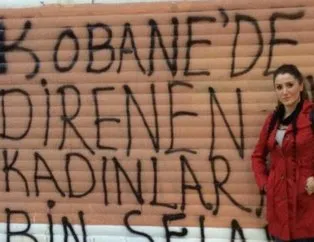 KOBANE'DE
DİRENEN
KADINLARA
BİN SELAM